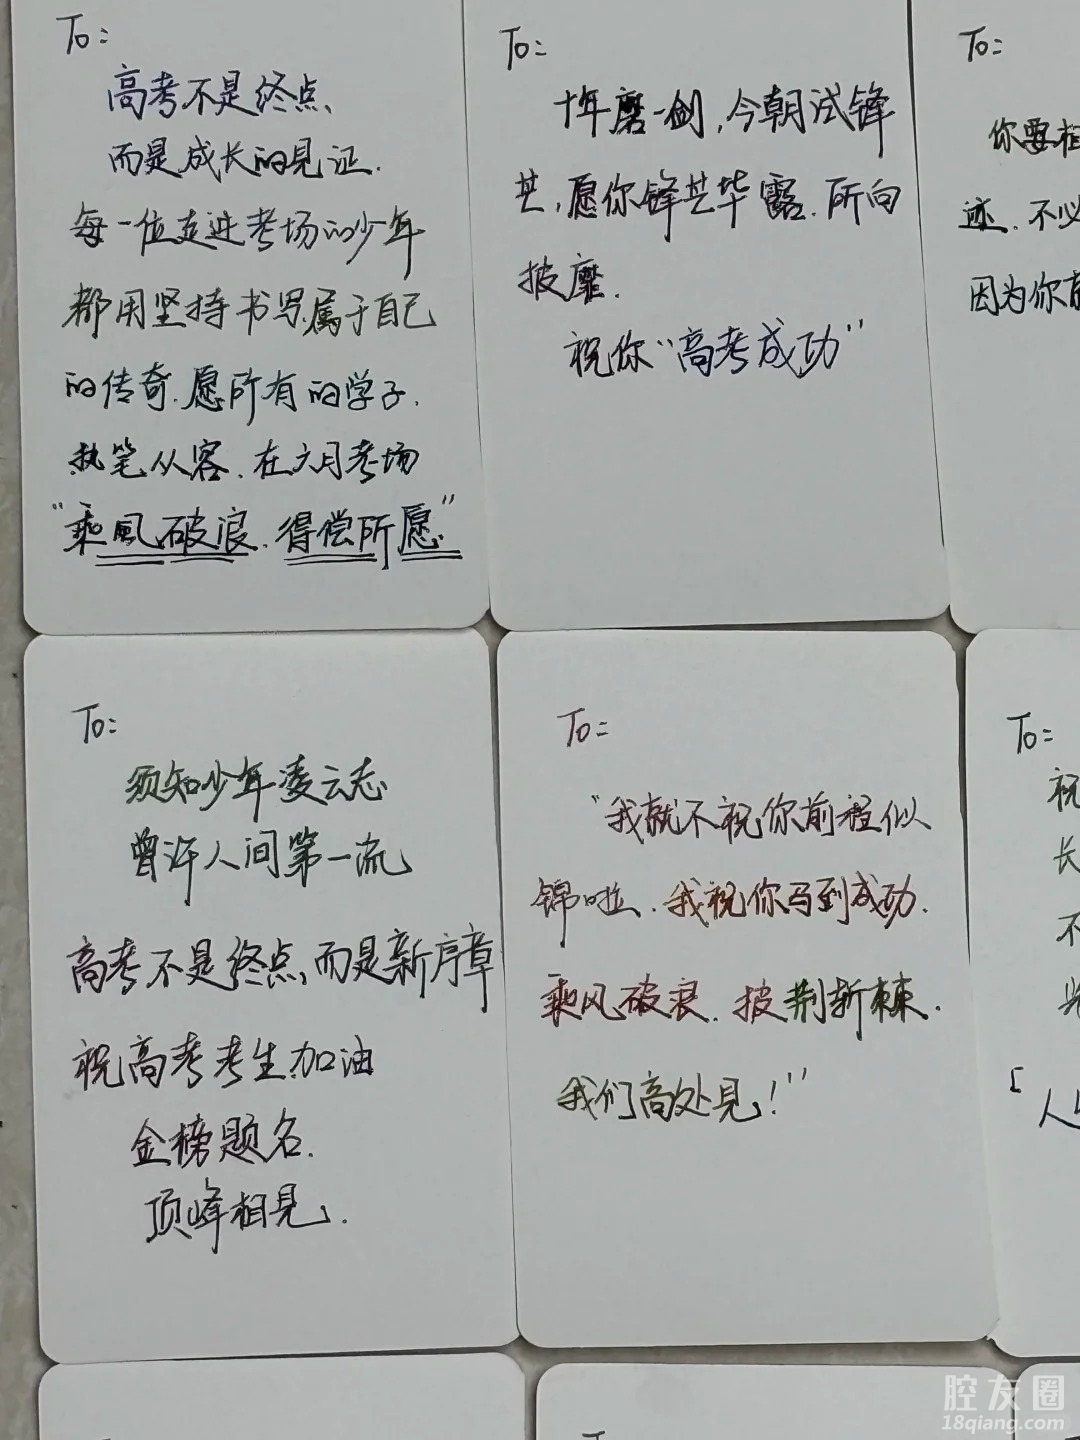 To:
高考不是终点、
而是成长的见证.
每一位走进考场的少年
都用坚持书写属于自己
的传奇.愿所有的学子.
执笔从容.在六月考场
“乘風破浪.得偿所愿”
To:
十年磨一剑,今朝试锋
芒,愿你锋芒毕露.所向
披靡.
祝你“高考成功”
To:
你要相
迹.不必
因为你
To:
须知少年凌云志
曾许人间第一流
高考不是终点,而是新序章
祝高考考生加油
金榜题名.
顶峰相见.
To:
“我就不祝你前程似
锦啦.我祝你马到成功.
乘风破浪.披荆斩棘.
我们高处见!”
To:
祝
长
不
「人
To:
腔友圈
18qiang.com